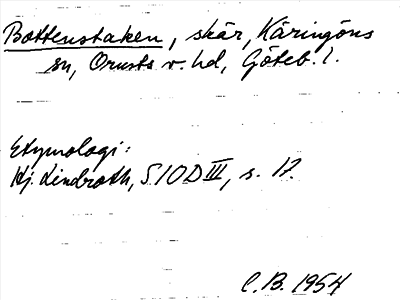 Bottenstaken, skär, Käringöns
sn, Orusts v. hd, Göteb. l.
Etymologi:
Hj. Lindroth, SIOD III, s. 17.
C.B. 1954